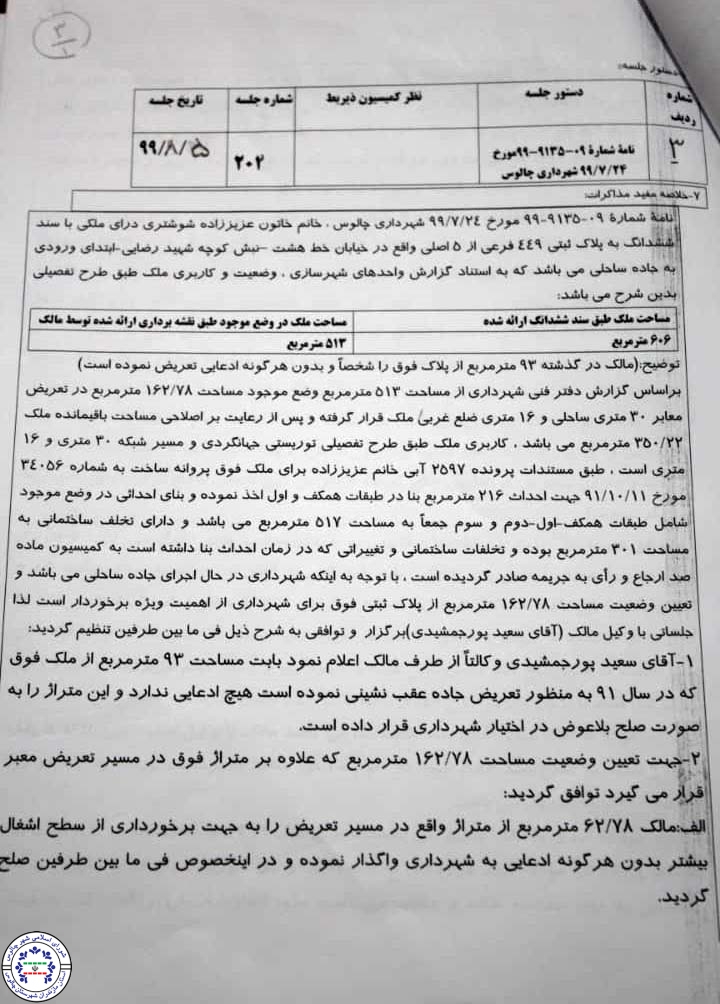 ۳/۱
دستور جلسه:
شماره ردیف
دستور جلسه
نظر کمیسیون ذیربط
شماره جلسه
تاریخ جلسه
۳
نامهٔ شمارهٔ ۰۹-۹۱۳۵-۹۹مورخ
۹۹/۷/۲۴ شهرداری چالوس
۲۰۲
۹۹/۸/۵
۷-خلاصه مفید مذاکرات:
نامهٔ شمارهٔ ۰۹-۹۱۳۵-۹۹ مورخ ۹۹/۷/۲٤ شهرداری چالوس ، خانم خاتون عزیززاده شوشتری درای ملکی با سند
ششدانگ به پلاک ثبتی ٤٤۹ فرعی از ۵ اصلی واقع در خیابان خط هشت –نبش کوچه شهید رضایی-ابتدای ورودی
به جاده ساحلی می باشد که به استناد گزارش واحدهای شهرسازی ، وضعیت و کاربری ملک طبق طرح تفصیلی
بدین شرح می باشد:
مساحت ملک طبق سند ششدانگ ارائه شده
مساحت ملک در وضع موجود طبق نقشه برداری ارائه شده توسط مالک
۶۰۶ مترمربع
۵۱۳ مترمربع
توضیح:(مالک در گذشته ۹۳ مترمربع از پلاک فوق را شخصاً و بدون هرگونه ادعایی تعریض نموده است)
براساس گزارش دفتر فنی شهرداری از مساحت ۵۱۳ مترمربع وضع موجود مساحت ۱۶۲/۷۸ مترمربع در تعریض
معابر ۳۰ متری ساحلی و ۱۶ متری ضلع غربی ملک قرار گرفته و پس از رعایت بر اصلاحی مساحت باقیمانده ملک
۳۵۰/۲۲ مترمربع می باشد ، کاربری ملک طبق طرح تفصیلی توریستی جهانگردی و مسیر شبکه ۳۰ متری و ۱۶
متری است ، طبق مستندات پرونده ۲۵۹۷ آبی خانم عزیززاده برای ملک فوق پروانه ساخت به شماره ۳٤۰۵۶
مورخ ۹۱/۱۰/۱۱ جهت احداث ۲۱۶ مترمربع بنا در طبقات همکف و اول اخذ نموده و بنای احداثی در وضع موجود
شامل طبقات همکف-اول-دوم و سوم جمعاً به مساحت ۵۱۷ مترمربع می باشد و دارای تخلف ساختمانی به
مساحت ۳۰۱ مترمربع بوده و تخلفات ساختمانی و تغییراتی که در زمان احداث بنا داشته است به کمیسیون ماده
صد ارجاع و رأی به جریمه صادر گردیده است ، با توجه به اینکه شهرداری در حال اجرای جاده ساحلی می باشد و
تعیین وضعیت مساحت ۱۶۲/۷۸ مترمربع از پلاک ثبتی فوق برای شهرداری از اهمیت ویژه برخوردار است لذا
جلساتی با وکیل مالک (آقای سعید پورجمشیدی)برگزار و توافقی به شرح ذیل فی ما بین طرفین تنظیم گردید:
۱-آقای سعید پورجمشیدی وکالتاً از طرف مالک اعلام نمود بابت مساحت ۹۳ مترمربع از ملک فوق
که در سال ۹۱ به منظور تعریض جاده عقب نشینی نموده است هیچ ادعایی ندارد و این متراژ را به
صورت صلح بلاعوض در اختیار شهرداری قرار داده است.
۲-جهت تعیین وضعیت مساحت ۱۶۲/۷۸ مترمربع که علاوه بر متراژ فوق در مسیر تعریض معبر
قرار می گیرد توافق گردید:
الف:مالک ۶۲/۷۸ مترمربع از متراژ واقع در مسیر تعریض را به جهت برخورداری از سطح اشغال
بیشتر بدون هرگونه ادعایی به شهرداری واگذار نموده و در اینخصوص فی ما بین طرفین صلح
گردید.
شورای اسلامی شهر چالوس
استان مازندران شهرستان چالوس